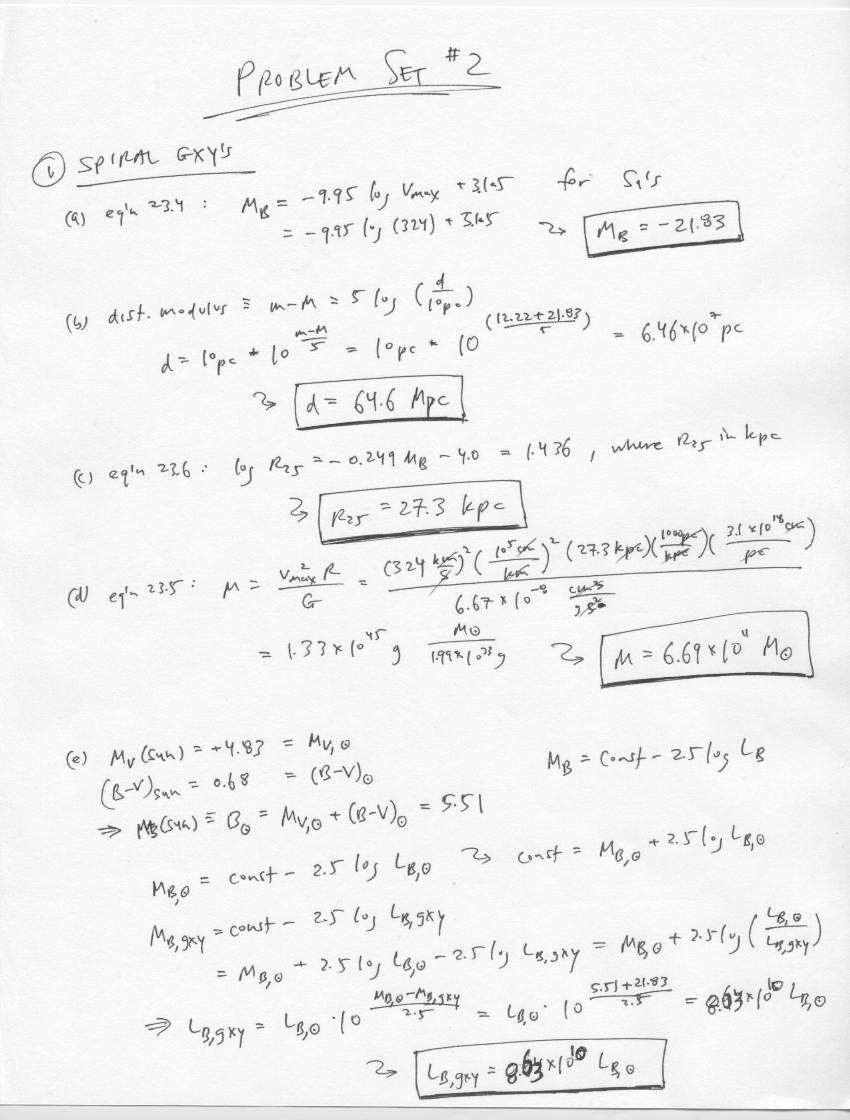 PROBLEM SET #2
① SPIRAL GXY'S
(a) eq'n 23.4 : M_B = -9.95 log V_max + 3.15 for Sa's
= -9.95 log (324) + 3.15 → M_B = -21.83
(b) dist. modulus ≡ m-M = 5 log (d/10pc)
d = 10pc * 10^((m-M)/5) = 10pc * 10^((12.22+21.83)/5) = 6.46×10^7 pc
→ d = 64.6 Mpc
(c) eq'n 23.6 : log R_25 = -0.249 M_B - 4.0 = 1.436 , where R_25 in kpc
→ R_25 = 27.3 kpc
(d) eq'n 23.5 : M = V_max^2 R / G = (324 km/s)^2 (10^5 cm/km)^2 (27.3 kpc)(1000pc/kpc)(3.1×10^18 cm/pc) / 6.67×10^-8 cm^3/g s^2
= 1.33×10^45 g M⊙/1.99×10^33 g → M = 6.69×10^11 M⊙
(e) M_V(sun) = +4.83 = M_V,⊙ M_B = const - 2.5 log L_B
(B-V)_sun = 0.68 = (B-V)_⊙
⇒ M_B(sun) ≡ B_⊙ = M_V,⊙ + (B-V)_⊙ = 5.51
M_B,⊙ = const - 2.5 log L_B,⊙ → const = M_B,⊙ + 2.5 log L_B,⊙
M_B,gxy = const - 2.5 log L_B,gxy
= M_B,⊙ + 2.5 log L_B,⊙ - 2.5 log L_B,gxy = M_B,⊙ + 2.5 log (L_B,⊙/L_B,gxy)
⇒ L_B,gxy = L_B,⊙ · 10^((M_B,⊙-M_B,gxy)/2.5) = L_B,⊙ · 10^((5.51+21.83)/2.5) = ×10^10 L_B,⊙
→ L_B,gxy = ×10^10 L_B,⊙